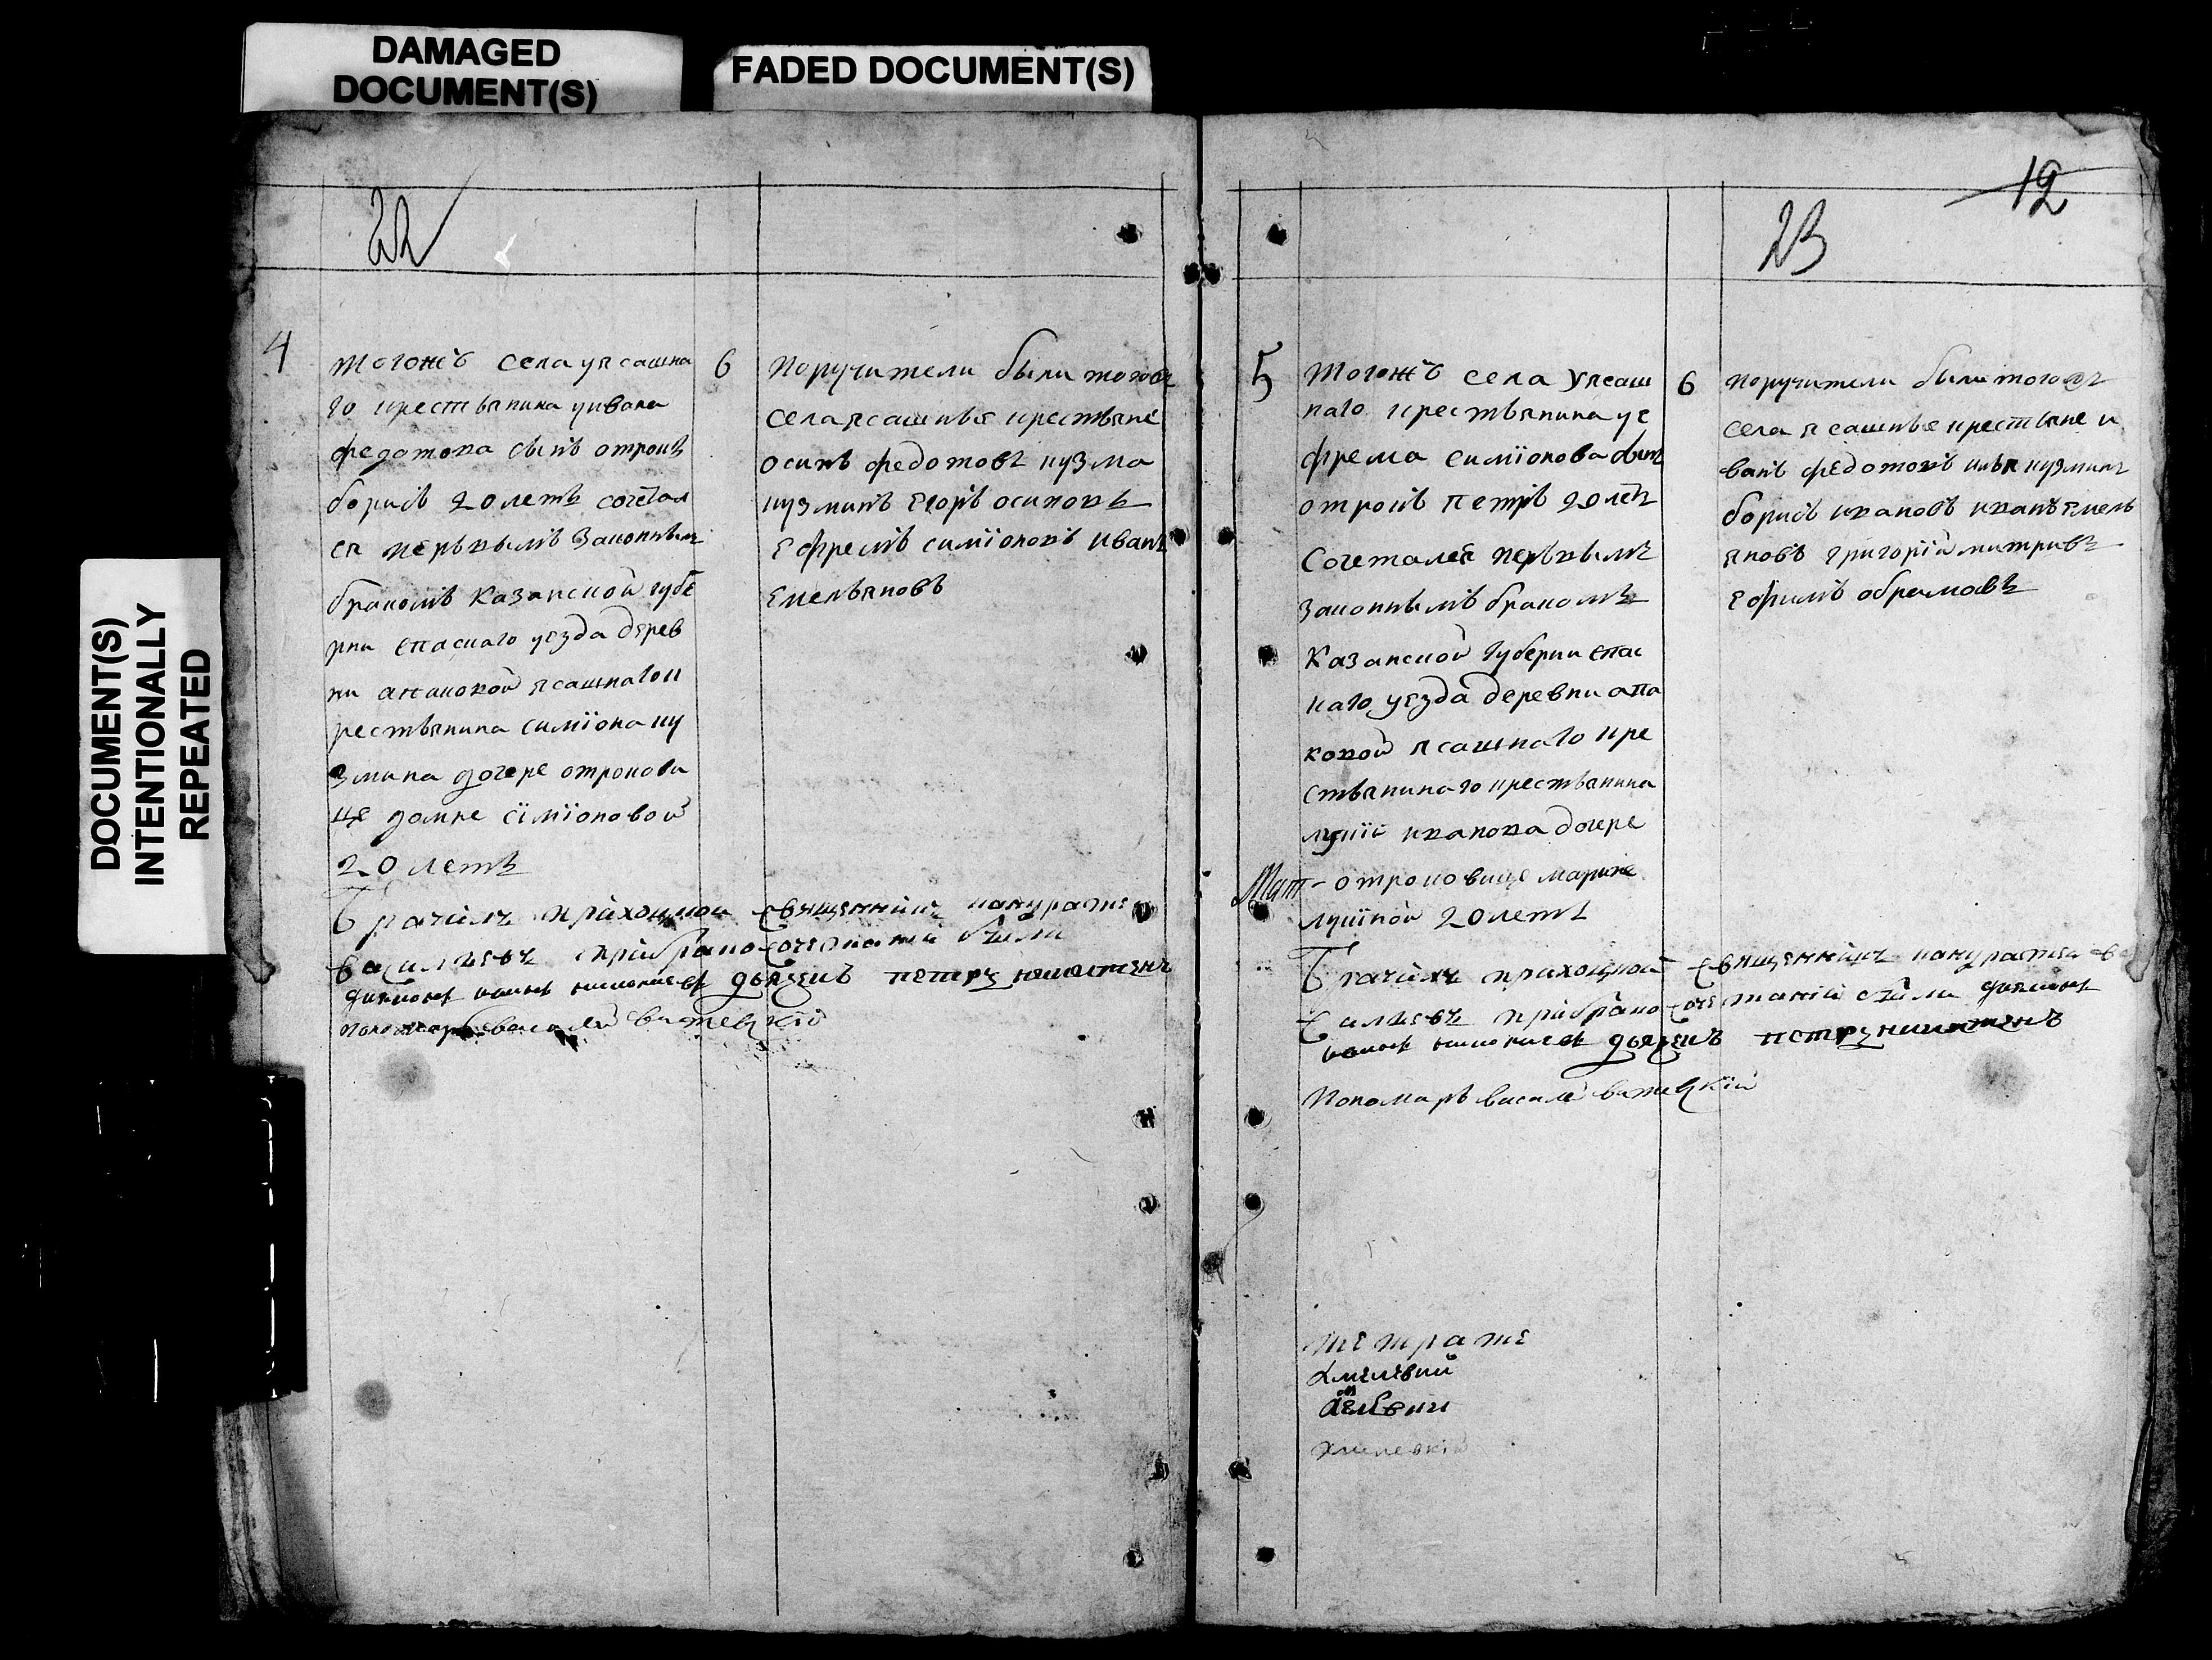 DAMAGED
DOCUMENT(S)
FADED DOCUMENT(S)
DOCUMENT(S)
INTENTIONALLY
REPEATED
22
4
тогожъ села уясашна
го крестьянина уивана
федотова сынъ отрокъ
борисъ 20 летъ сочетал
ся первымъ законнымъ
бракомъ казанской губе
рни спаскаго уезда дерев
ни анаковой ясашнагок
рестьянина симiона ку
змина дочере отрокови
це домне сiмiоновой
20 летъ
6
поручители были тогожъ
села ясашные крестьяне
осипъ федотовъ кузма
кузминъ егоръ осиповъ
ефремъ симiоновъ иванъ
емельяновъ
Брачилъ приходцкой священникъ
васильевъ при бракосочетании были
дьячекъ петръ никитенъ
пономарь василей вятецкiй
12
23
5
тогожъ села уясаш
наго крестьянина уе
фрема симiонова сынъ
отрокъ петръ 20 летъ
сочетался первымъ
законнымъ бракомъ
казанской губернии спас
каго уезда деревни ана
ковой ясашнаго кре
стьянинаго крестьянина
лукiи иванова дочере
отроковице марине
лукiиной 20 летъ
6
поручители были тогожъ
села ясашные крестьяне и
ванъ федотовъ илья кузминъ
борисъ ивановъ иванъ емель
яновъ григорiй митривъ
ефимъ обрамовъ
Брачилъ приходцкой священникъ
при бракосочетании были
дьячекъ петръ никитенъ
пономарь василей вятецкiй